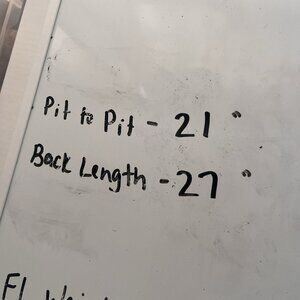 Pit to Pit - 21 "
Back Length - 27 "